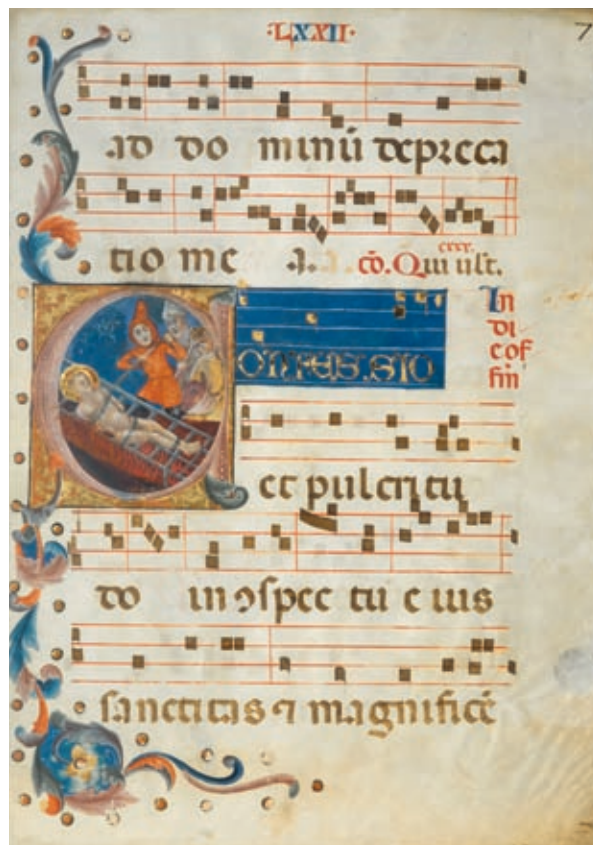 ·LXXII·
7
ad do minū depreca
tio me a. cō. Qui uult.
CONFESSIO
In
di
cof
fm
et pulcritu
do inɔspec tu e ius
sanctitas ⁊ magnificē